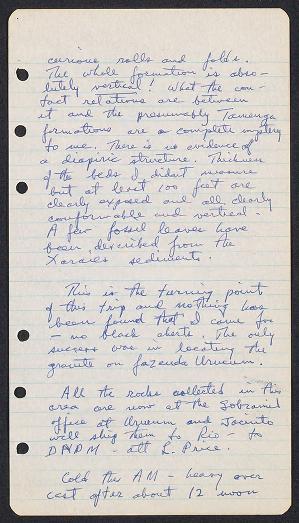 curious rolls and folds.
The whole formation is abso-
lutely vertical! What the con-
tact relations are between
it and the presumably Tamengo
formations are a complete mystery
to me. There is no evidence of
a diapiric structure. Thickness
of the beds I didn't measure
but at least 100 feet are
clearly exposed and all clearly
conformable and vertical.
A few fossil leaves have
been described from the
Xaraies sediments.
This is the turning point
of this trip and nothing has
been found that I came for
— no black cherts. The only
success was in locating the
granite on fazenda Urucum.
All the rocks collected in this
area are now at the Sobramil
office at Urucum and Jacinto
will ship them to Rio — to
DNPM — att L. Price.
Cold this AM — heavy over
cast after about 12 noon